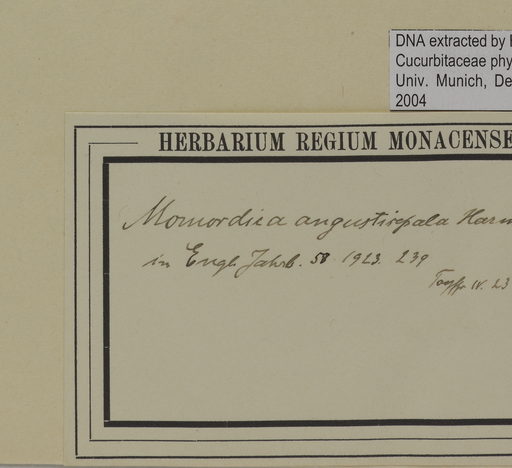 DNA extracted by
Cucurbitaceae phy
Univ. Munich, De
2004
HERBARIUM REGIUM MONACENSE
Momordica angustisepala Harm
in Engl. Jahrb. 58 1923. 239
IV. 23